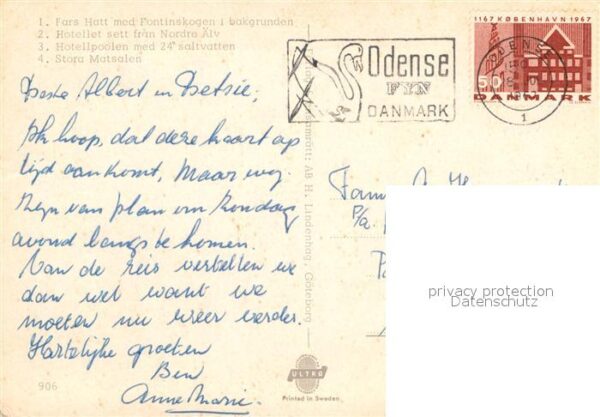 1. Fars Hatt med Fontinskogen i bakgrunden
2. Hotellet sett från Nordre Älv
3. Hotellpoolen med 24° saltvatten
4. Stora Matsalen
Beste Albert en Betsie,
Ik hoop, dat deze kaart op
tijd aankomt, Maar wij
zijn van plan om Zondag
avond langs te komen.
Van de reis vertellen we
dan wel want we
moeten nu weer verder.
Hartelijke groeten
Ben
Anne Marie.
906
AB H. Lindenhag, Göteborg
ULTRA
Printed in Sweden
Odense
FYN
DANMARK
1167 KØBENHAVN 1967
50
DANMARK
ODENSE
1
Fam.
P/a
privacy protection
Datenschutz